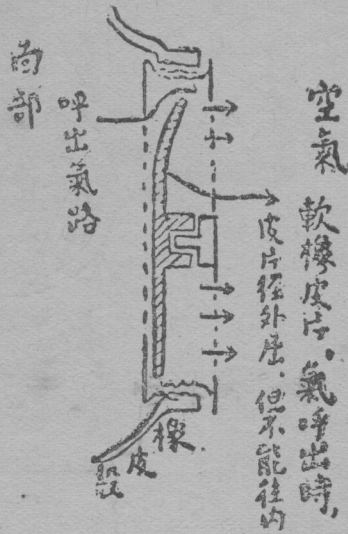 空氣
軟橡皮片，氣呼出時，
皮片徑外屈，但不能往內
呼出氣路
面部
橡皮殼